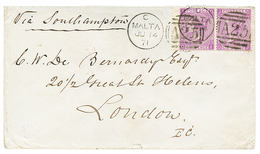 Via Southampton
C
MALTA
JU 12
71
A25
A25
C. W. De Bernardy Esqre.
20/2 Great St Helens,
London.
E.C.